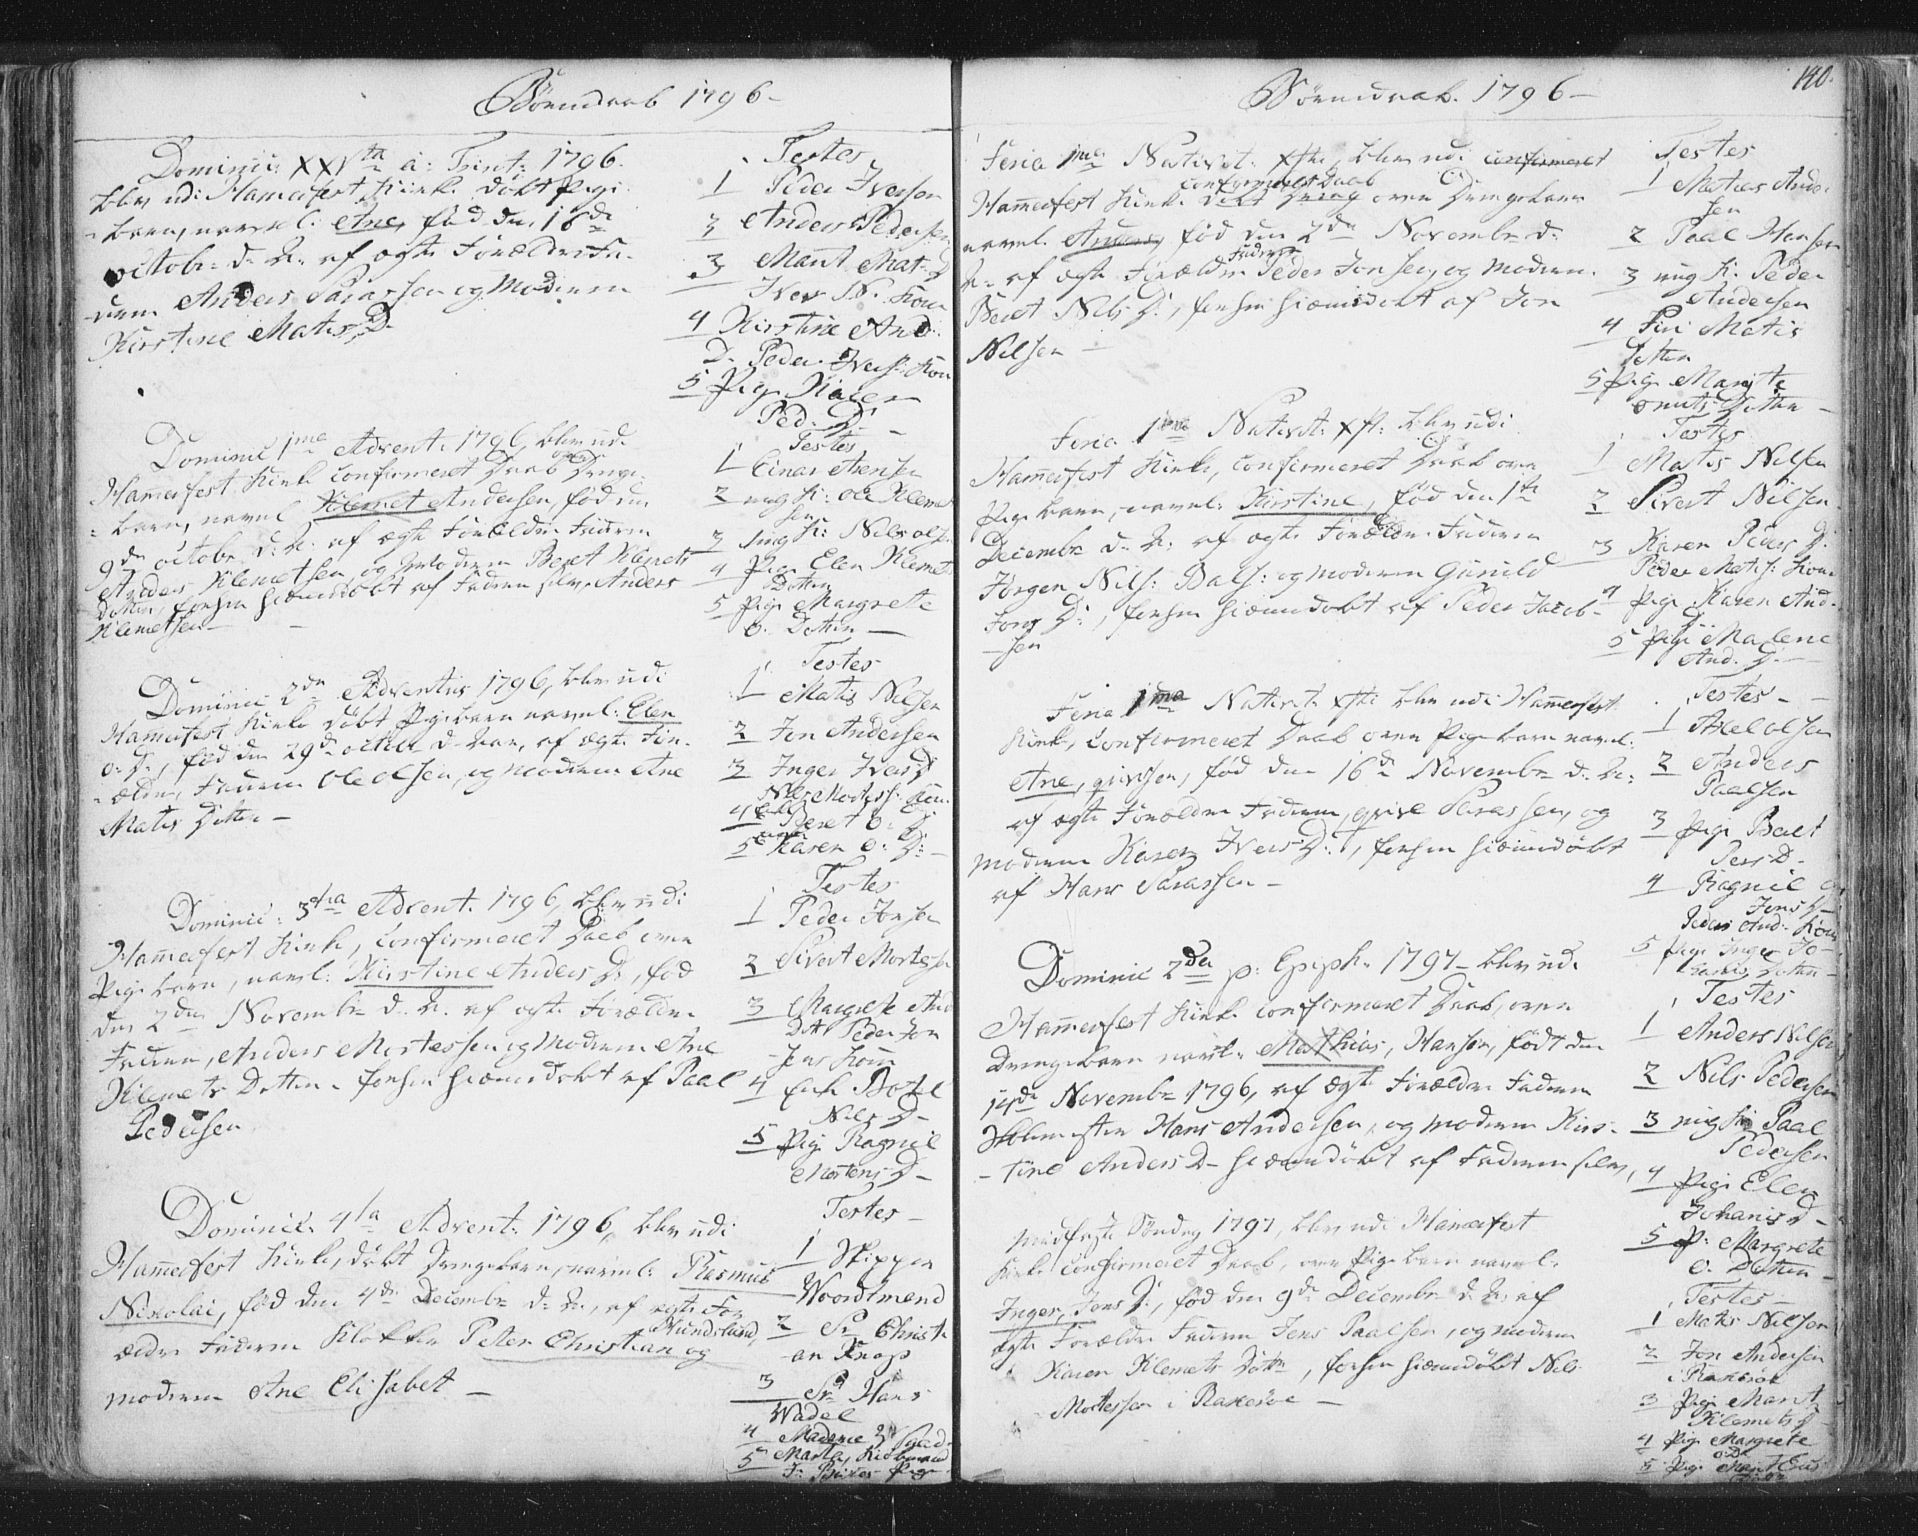 Børnedaab 1796 –
Dominic: XXVta a: Trinit: 1796.
blev udi Hamerfest Kirke døbt Pige
barn, navnl: Ane, fød den 16de
octobr: d. A: af ægte Forældre Fa-
deren Anders Sarassen og Moderen
Kirstine Matis D:
Testes
1 Peder Iversen
2 Anders Pedersen
3 Marit Mat: D
Iver N: Kone
4 Kirstine And:
D: Peder Ivers: Kone
5 Pige Maren
Ped: D: –
Dominic 1ma Advent: 1796, blev udi
Hamerfest Kirke confirmeret Daab over Drenge
barn, navnl Klemet Andersen, fød den
9de octobr: d: A: af ægte Forældre Faderen
Anders Klemetsen og Moderen Beret Klemets
Dotter, forhen hiemmedøbt af Faderen selv Anders
Klemetsen –
Testes
1 Einar Arensen
2 ung K: Ole Klemet
sen
3 ung K: Nils ols:
4 Pige Elen Klemets
Dotter
5 Pige Margrete
O: Dotter –
Dominic 2da Adventus 1796, blev udi
Hamerfest Kirke døbt Pigebarn navnl: Elen
O: D:, fød den 29de octbr d: Aar, af ægte For-
ældre, Faderen Ole olsen, og Moderen Ane
Matis Dotter –
Testes
1 Matis Nilsen
2 Jon Andersen
3 Inger Ivers D
Nils Mortess: Kone
4 Beret O: D:
5 Karen O: D: –
Dominic: 3tia Advent: 1796, blev udi
Hamerfest Kirke, confirmeret Daab over
Pige barn, navnl: Kirstine Anders D:, fød
den 2den Novembr: d. A: af ægte Forældre
Faderen, Anders Mortessen og Moderen Ane
Klemets Dotter – forhen hiemmedøbt af Paal
Pedersen
Testes
1 Peder Jonsen
2 Sivert Mortessen
3 Margrete And
Dtt Peder Jon
sens Kone
4 Enke Botel
Nils D –
5 Pige Ragnil
Mortens D –
Dominic: 4ta Advent: 1796, blev udi
Hamerfest Kirke, døbt Drengebarn, navnl: Rasmus
Nikolai, fød den 4de Decembr: d: A:, af ægte For
ældre Faderen Klokker Peter Christian Hundslund, og
Moderen Ane Elisabet –
Testes –
1 Skipper
Woordtmand
2 Sr Christi
an Knap
3 Sr Hans
Wadel
4 Madame
5 Marta,
Børnedaab. 1796 –
140.
Feria 1ma Nativit: Xsti, blev udi confirmeret
confirmeret Daab
Hamerfest Kirke døbt Dreng over Drengebarn
navnl. Anders, fød den 2den Novembr: d:
A: af ægte Forældre Faderen Peder Jonsen, og Moderen
Beret Nils D:, forhen hiemmedøbt af Jon
Nilsen –
Testes
1 Matias Ander
sen
2 Paal Hansen
3 ung K: Peder
Andersen
4 Siri Matis
Dotter
5 Pige Marite
Dotter –
Feria 1ma Nativit: Xsti: blev udi
Hamerfest Kirke, confirmeret Daab over
Pigebarn, navnl: Kirstine, fød den 1te
Decembr: d: A: af ægte Forældre Faderen
Jørgen Nils: Bals: og Moderen Gunild
Jons D:, forhen hiemmedøbt af Peder Jacob-
sen
Testes
1 Matis Nilsen
2 Sivert Nilsen
3 Karen Peders D:
Peder Matis: Kone
4 Pige Karen And-
D:
5 Pige Malene
And: D: –
Feria 1ma Nativit: Xsti blev udi Hamerfest
Kirke, confirmeret Daab over Pigebarn navnl:
Ane, fød den 16de Novembr: d: A:
af ægte Forældre Faderen, Sarassen, og
Moderen Karen Ivers D:, forhen hiemmedøbt
af Hans Sarassen –
Testes –
1 Axel olsen
2 Anders
Paalsen
3 Pige Beret
Pers D –
4 Ragnil
Jons D –
Peders And: Kone
5 Pige Inger Jo-
hanis Dotter –
Dominic 2da p: Epiph: 1797 – blev udi
Hamerfest Kirke confirmeret Daab, over
Drengebarn navnl: Mathias, Hansen, født den
14de Novembr: 1796, af ægte Forældre Faderen
Skolemester Hans Andersen, og Moderen Kirs-
tine Anders D – hiemmedøbt af Faderen selv,
Testes
1 Anders Nilsen
2 Nils Pedersen
3 ung K: Paal
Pedersen
4 Pige Elen
Johanis D –
5 P: Margrete
O: Dotter –
Midfaste Søndag 1797, blev udi Hamerfest
Kirke confirmeret Daab, over Pigebarn navnl:
Inger, Jens D:, fød den 9de Decembr: d: A: af
ægte Forældre Faderen Jens Paalsen, og Moderen
Karen Klemets Dotter, forhen hiemmedøbt Nils
Mortessen i Rakesøe –
Testes –
1 Matis Nilsen
2 Jon Andersen
i Rakesøe
3 Pige Marit
Klemets D –
4 Pige Margrete
O D
5 Pige Marit
Dotter